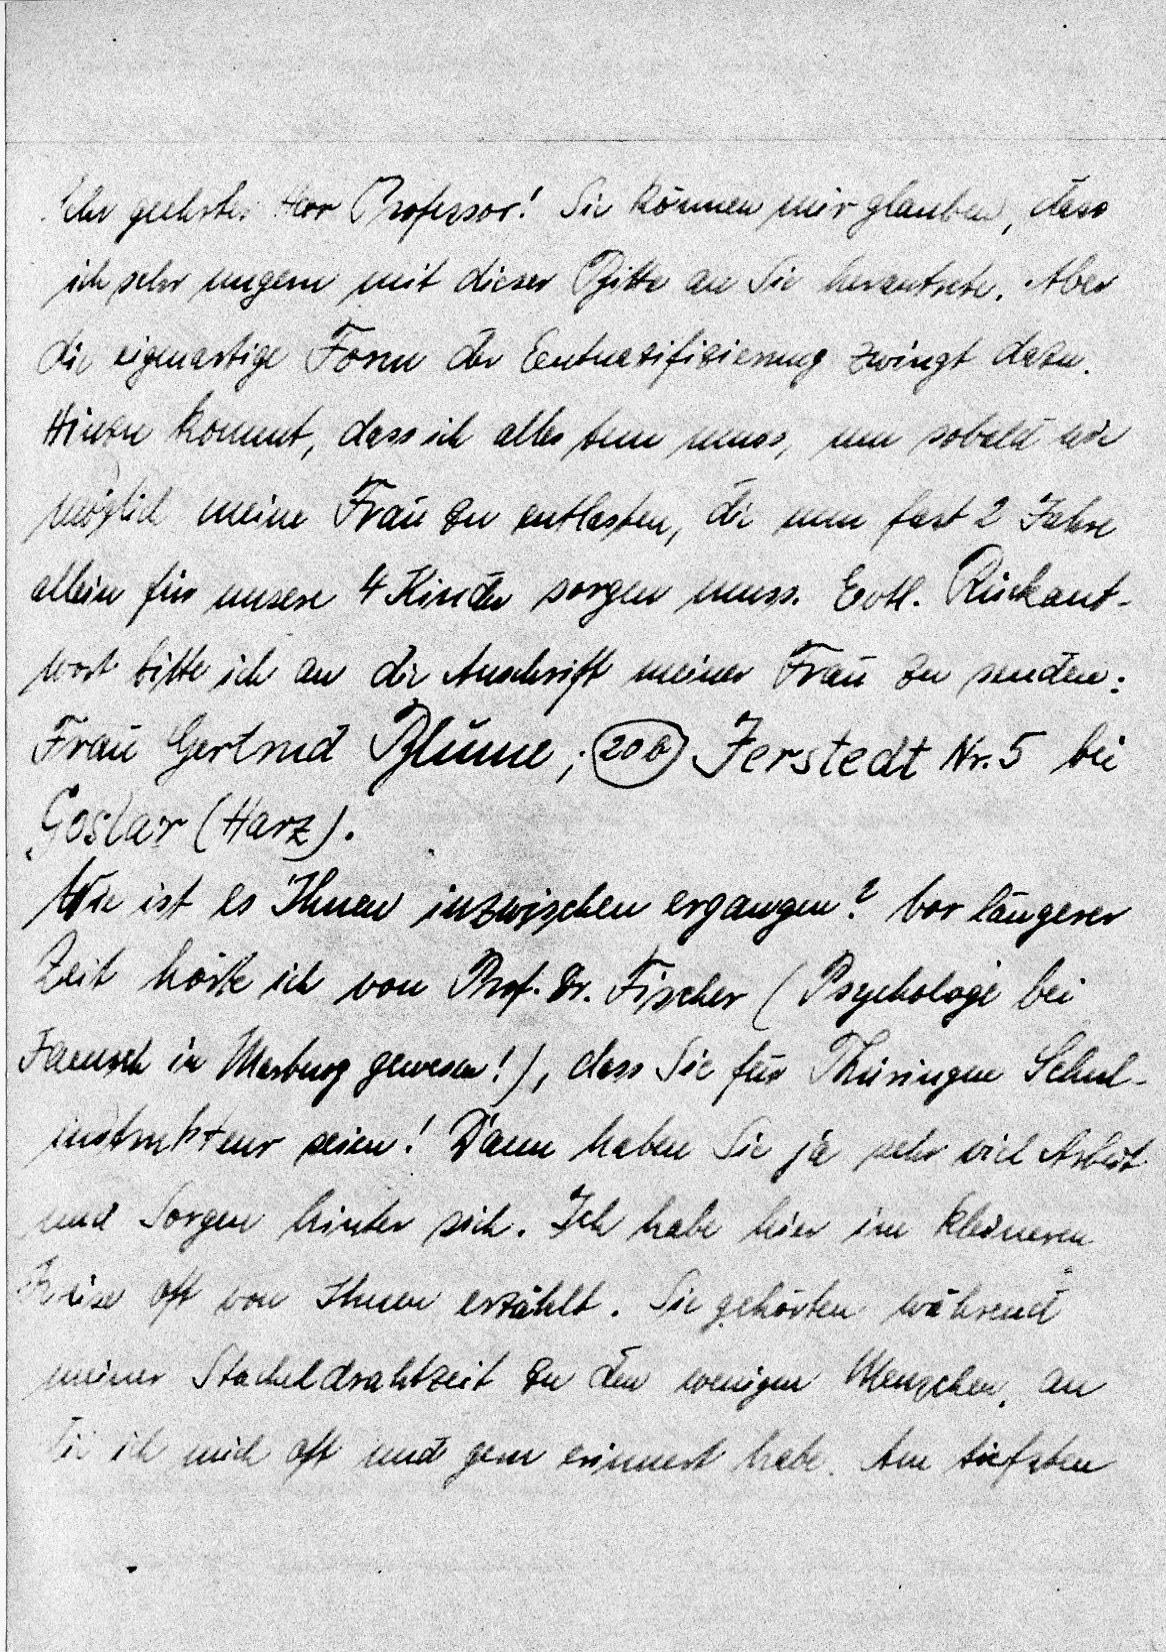 Sehr geehrter Herr Professor! Sie können mir glauben, dass
ich sehr ungern mit dieser Bitte an Sie herantrete. Aber
die eigenartige Form der Entnazifizierung zwingt dazu.
Hinzu kommt, dass ich alles tun muss, um sobald wie
möglich meine Frau zu entlasten, die nun fast 2 Jahre
allein für unsere 4 Kinder sorgen muss. Evtl. Rückant-
wort bitte ich an die Anschrift meiner Frau zu senden:
Frau Gertrud Blume, (20b) Jerstedt Nr. 5 bei
Goslar (Harz).
Wie ist es Ihnen inzwischen ergangen? Vor längerer
Zeit hörte ich von Prof. Dr. Fischer (Psychologe bei
Jaensch in Marburg gewesen!), dass Sie für Thüringen Schul-
instrukteur seien! Dann haben Sie ja sehr viel Arbeit
und Sorgen hinter sich. Ich habe hier im kleineren
Kreise oft von Ihnen erzählt. Sie gehörten während
meiner Stacheldrahtzeit zu den wenigen Menschen, an
die ich mich oft und gern erinnert habe. Am tiefsten